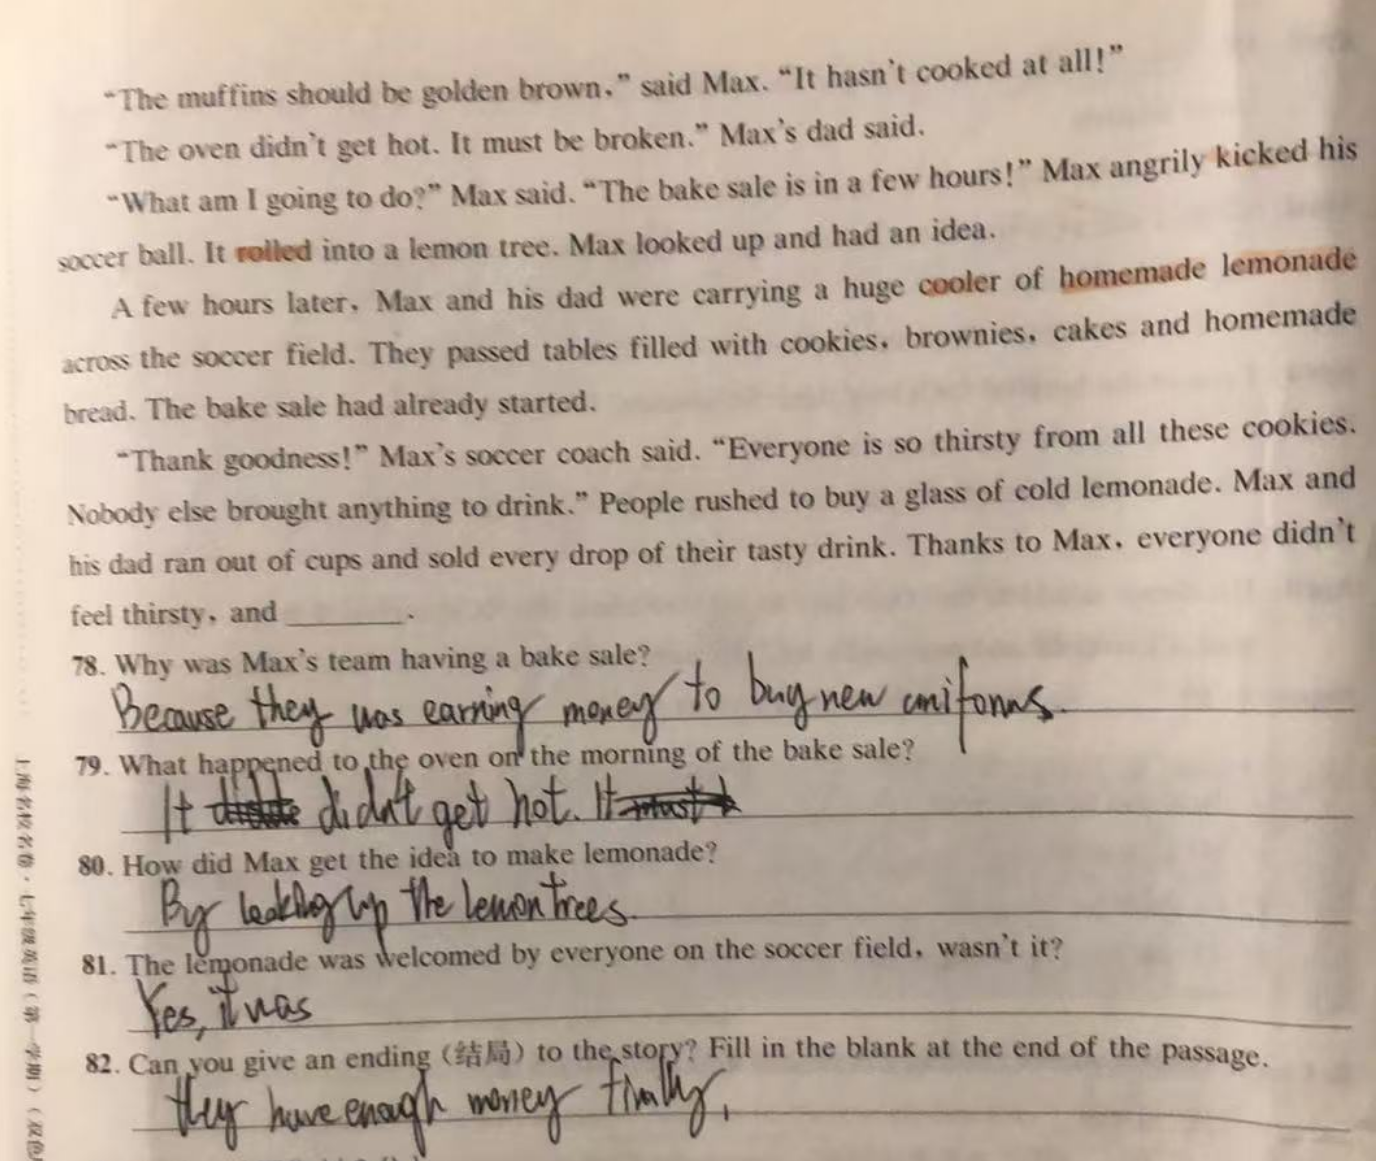 “The muffins should be golden brown,” said Max. “It hasn’t cooked at all!”
“The oven didn’t get hot. It must be broken.” Max’s dad said.
“What am I going to do?” Max said. “The bake sale is in a few hours!” Max angrily kicked his
soccer ball. It rolled into a lemon tree. Max looked up and had an idea.
A few hours later, Max and his dad were carrying a huge cooler of homemade lemonade
across the soccer field. They passed tables filled with cookies, brownies, cakes and homemade
bread. The bake sale had already started.
“Thank goodness!” Max’s soccer coach said. “Everyone is so thirsty from all these cookies.
Nobody else brought anything to drink.” People rushed to buy a glass of cold lemonade. Max and
his dad ran out of cups and sold every drop of their tasty drink. Thanks to Max, everyone didn’t
feel thirsty, and ________.
78. Why was Max’s team having a bake sale?
Because they was earning money to buy new uniforms.
79. What happened to the oven on the morning of the bake sale?
It didn't get hot. It
80. How did Max get the idea to make lemonade?
By looking up the lemon trees.
81. The lemonade was welcomed by everyone on the soccer field, wasn’t it?
Yes, it was
82. Can you give an ending (结局) to the story? Fill in the blank at the end of the passage.
they have enough money finally.
上海名校名卷·七年级英语(第一学期)(双色